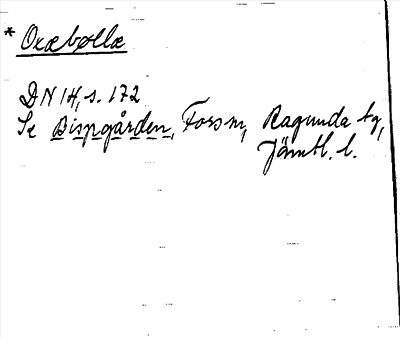 * Oræbøllæ
DN 14, s. 172
Se Bispgården, Forsm, Ragunda tg,
Jämtl. l.